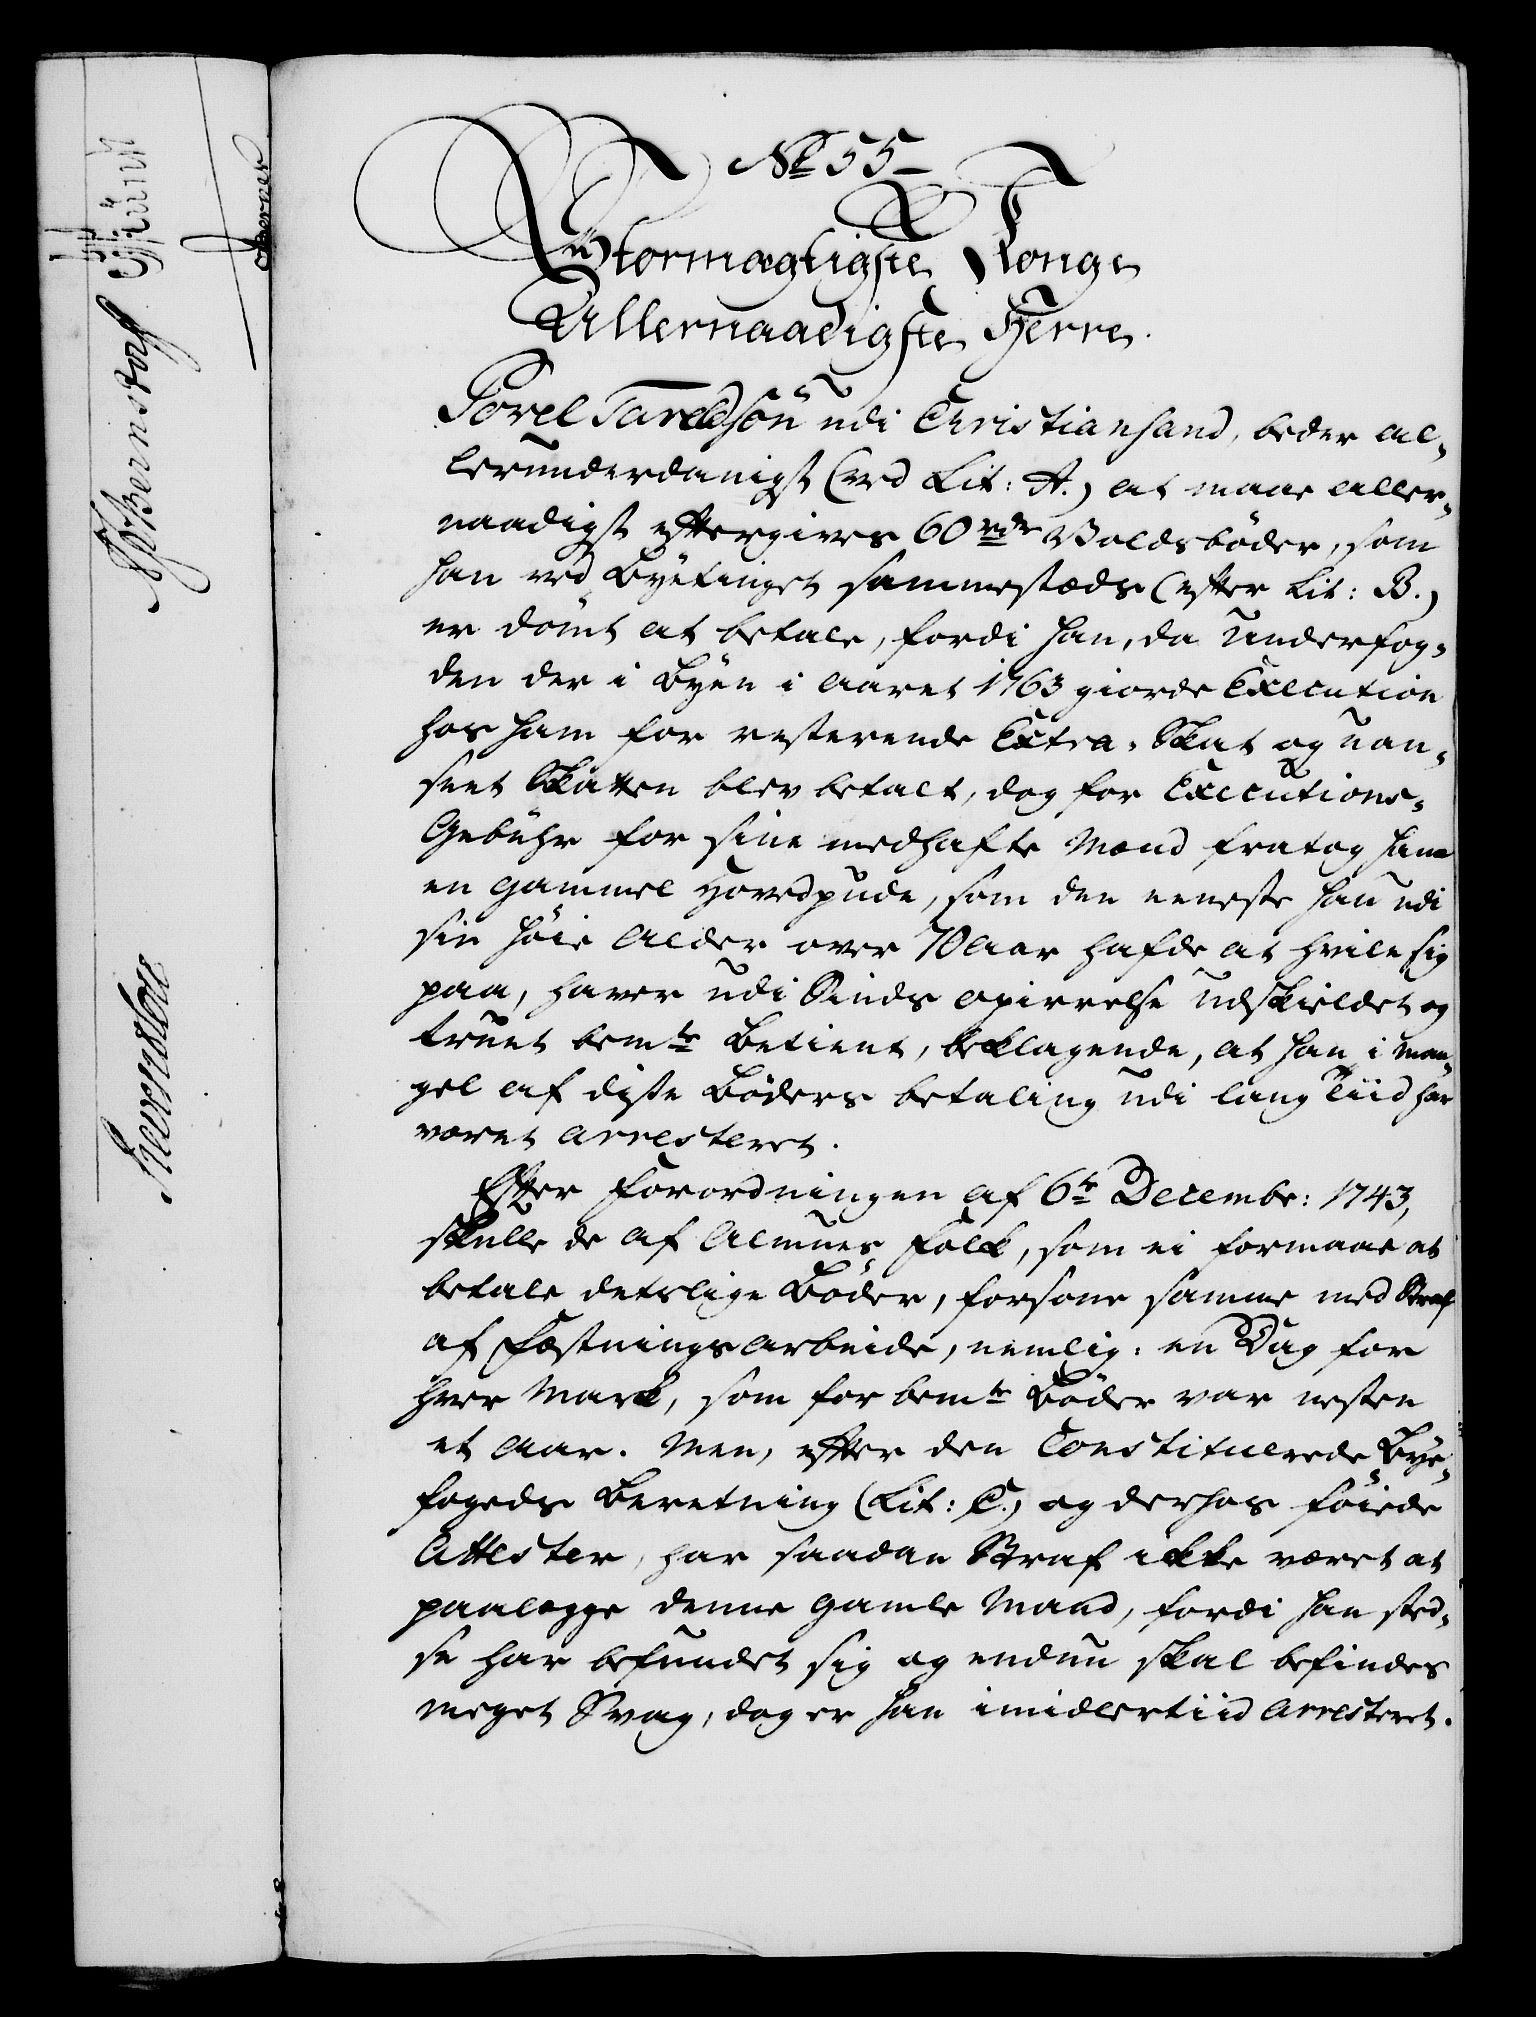 No 55
Stormægtigste Konge
Allernaadigste Herre.
Povel Tareldsön udi Christiansand, beder al-
lerunderdanigst (ved Lit: A.) at maae aller-
naadigst eftergives 60 rdr Voldsböder, som
han ved Byetinget sammestæds (efter Lit: B.)
er dömt at betale, fordi han, da Underfog-
den der i Byen i Aaret 1763 giorde Execution
hos ham for resterende Extra-Skat og uan-
seet Skatten blev betalt, dog for Executions-
Gebühr for sine medhafte Mænd fratog ham
en gammel Hovedpude, som den eeneste han udi
sin höie Alder over 70 Aar hafde at hvile sig
paa, haver udi Sinds opirrelse udskieldet og
truet bemte Betient, beklagende, at han i man-
gel af disse Böders betaling udi lang Tiid har
været arresteret.
Efter Forordningen af 6te Decembr: 1743,
skulle de af Almues Folk, som ei formaae at
betale detslige Böder, forsone samme med Straf
af Fæstningsarbeide, nemlig: en Dag for
hver Mark, som for bemte Böder var nesten
et Aar. Men, efter den Constituerede Bye-
fogeds Beretning (Lit: C.) og derhos föiede
Attester, har saadan Straf ikke været at
paalegge denne gamle Mand, fordi han sted-
se har befundet sig og endnu skal befindes
meget Svag, dog er han imidlertiid arresteret.